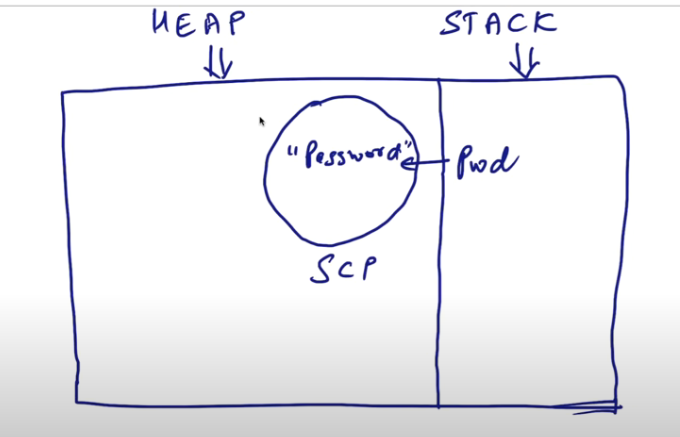 HEAP
STACK
"Password"
Pwd
SCP